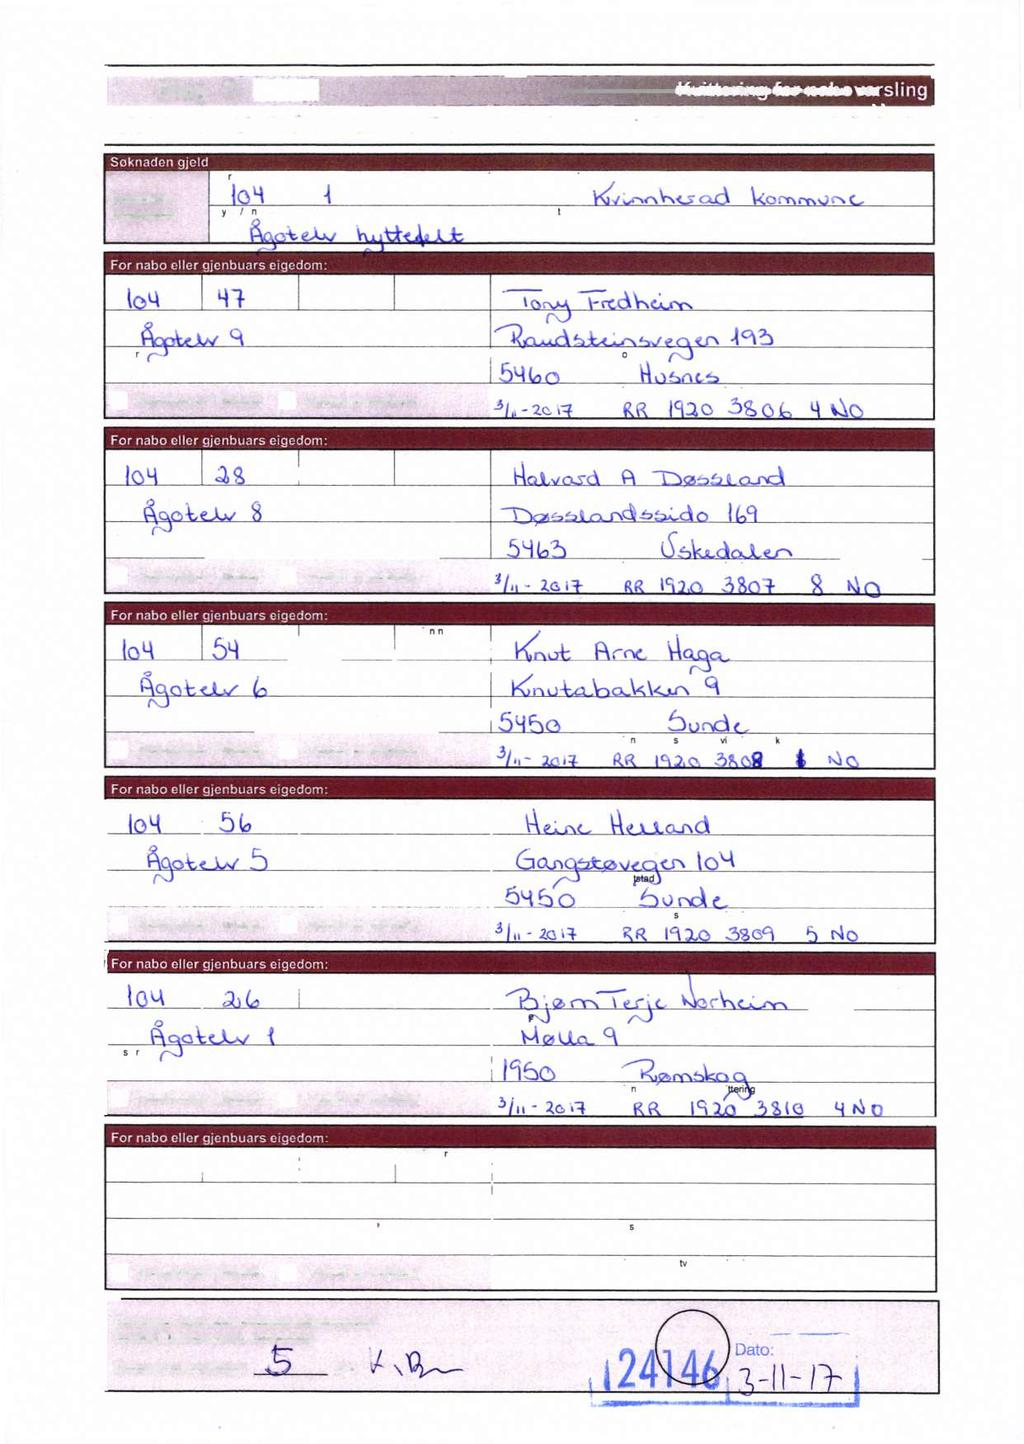 varsling
Søknaden gjeld
r
104 1 Kvinnherad kommune
y / n t
Ågotelv hyttefelt
For nabo eller gjenbuars eigedom:
104 47 Tony Fredheim
Ågotelv 9 Raudsteinsvegen 193
r o
5460 Husnes
3/11-2017 RR 1920 3806 4 NO
For nabo eller gjenbuars eigedom:
104 28 Halvard A Døssland
Ågotelv 8 Døsslandssido 169
5463 Uskedalen
3/11-2017 RR 1920 3807 8 NO
For nabo eller gjenbuars eigedom:
n n
104 54 Knut Arne Haga
Ågotelv 6 Knutabakken 9
5450 Sunde
n s vi k
3/11-2017 RR 1920 3808 NO
For nabo eller gjenbuars eigedom:
104 56 Heine Helland
Ågotelv 5 Gangstøvegen 104
5450 Sunde
s
3/11-2017 RR 1920 3809 5 NO
For nabo eller gjenbuars eigedom:
104 26 Bjørn Terje Norheim
Ågotelv 1 Mølla 9
s r
1950 Rømskog
n ttering
3/11-2017 RR 1920 3810 4 NO
For nabo eller gjenbuars eigedom:
r
s
tv
5 24146 Dato:
3-11-17